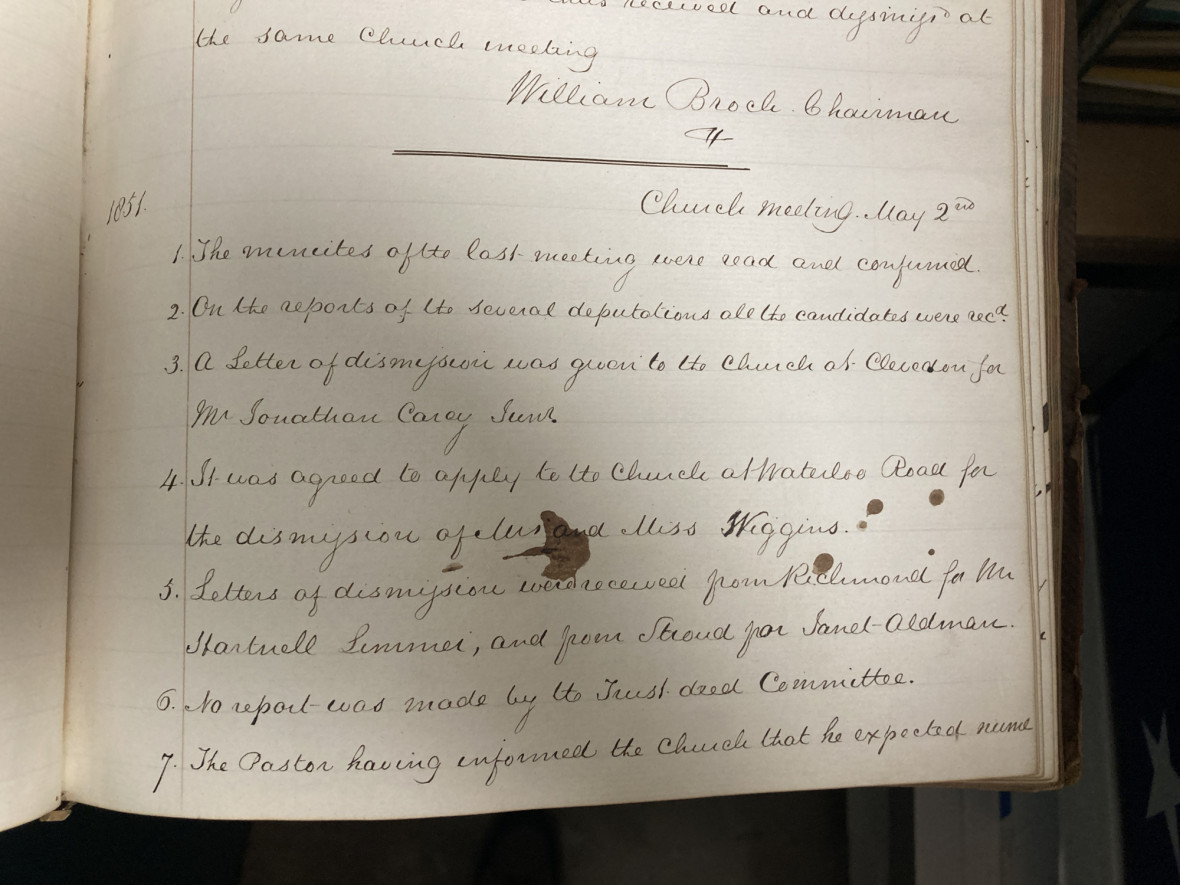 received and dismiss^d at
the same Church meeting
William Brock. Chairman
1851.
Church meeting. May 2nd
1. The minutes of the last meeting were read and confirmed.
2. On the reports of the several deputations all the candidates were rec^d.
3. A Letter of dismission was given to the Church at Clevedon for
Mr Jonathan Carey Junr.
4. It was agreed to apply to the Church at Waterloo Road for
the dismission of Mrs and Miss Wiggins.
5. Letters of dismission were received from Richmond for Mr
Hartnell, and from Stroud for Janet Aldman.
6. No report was made by the Trust deed Committee.
7. The Pastor having informed the Church that he expected